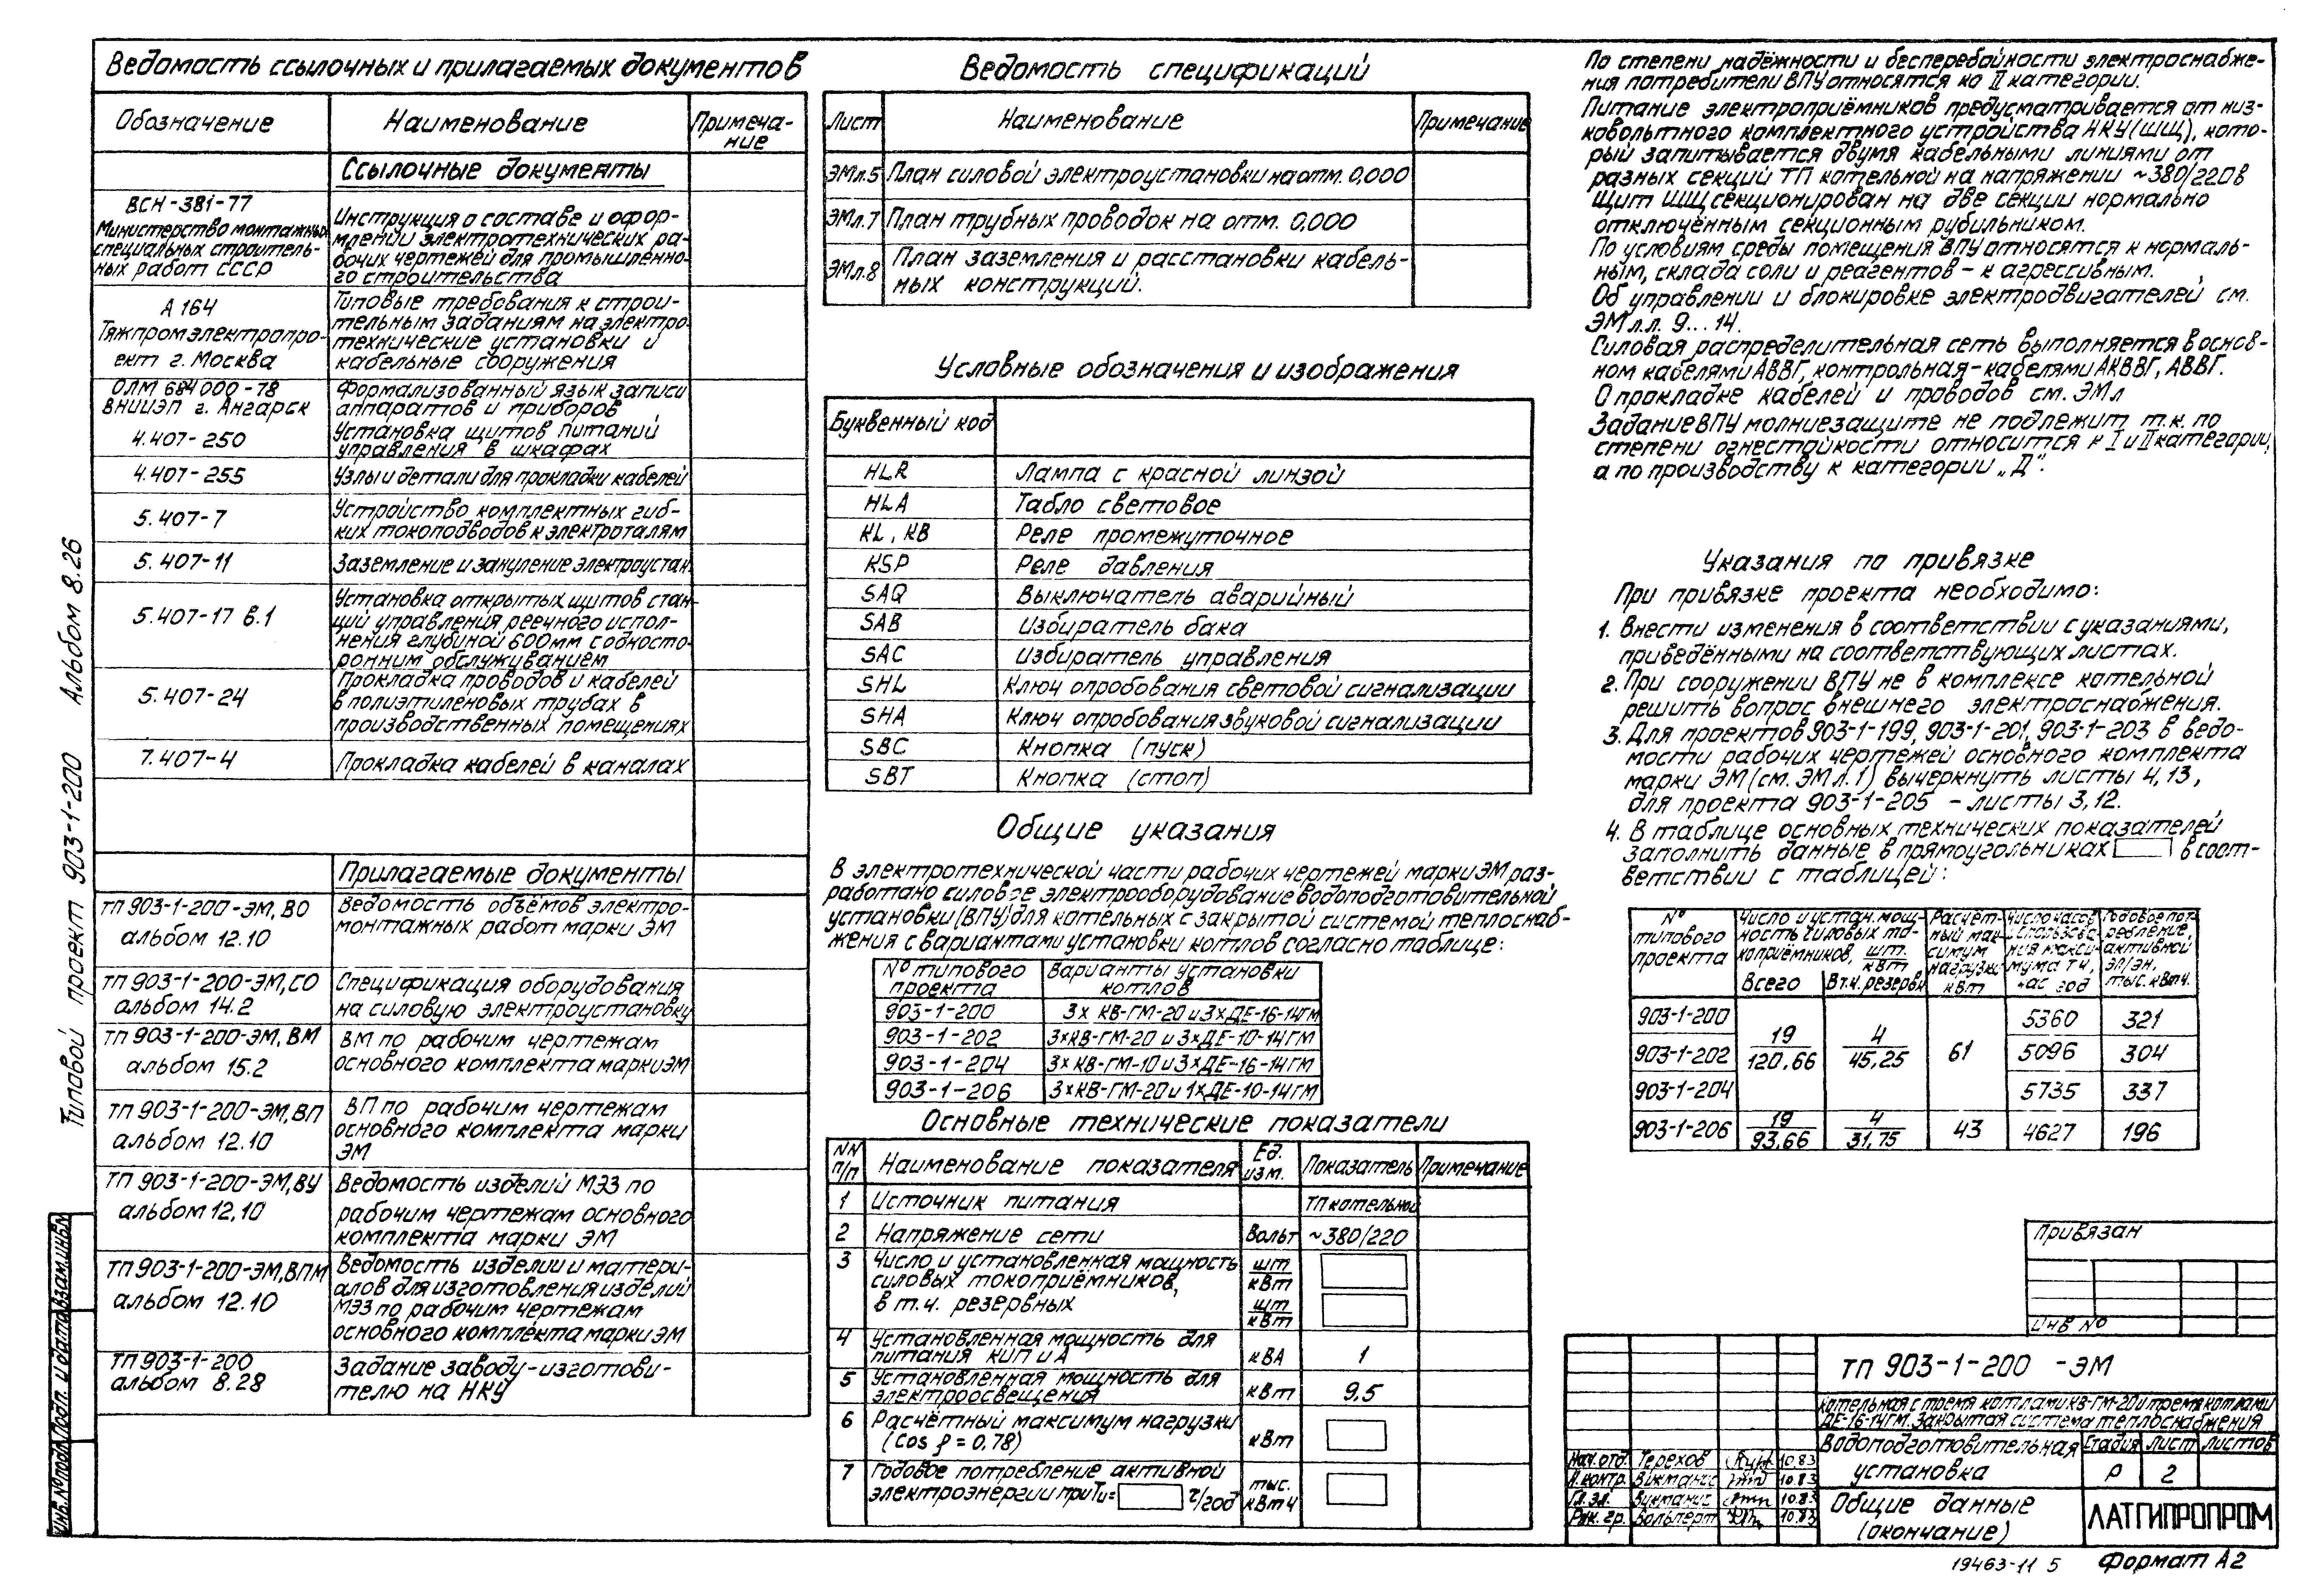 Ведомость ссылочных и прилагаемых документов
Обозначение
Наименование
Примеча-
ние
Ссылочные документы
ВСН-381-77
Министерство монтажных
специальных строитель-
ных работ СССР
Инструкция о составе и офор-
млении электротехнических ра-
бочих чертежей для промышленно-
го строительства
А 164
Тяжпромэлектропро-
ект г. Москва
Типовые требования к строи-
тельным заданиям на электро-
технические установки и
кабельные сооружения
ОЛМ 684 000-78
ВНИИЭП г. Ангарск
Формализованный язык записи
аппаратов и приборов
4.407-250
Установка щитов питаний
управления в шкафах
4.407-255
Узлы и детали для прокладки кабелей
5.407-7
Устройство комплектных гиб-
ких токоподводов к электроталям
5.407-11
Заземление и зануление электроустан.
5.407-17 в.1
Установка открытых щитов стан-
ций управления реечного испол-
нения глубиной 600мм с односто-
ронним обслуживанием
5.407-24
Прокладка проводов и кабелей
в полиэтиленовых трубах в
производственных помещениях
7.407-4
Прокладка кабелей в каналах
Прилагаемые документы
ТП 903-1-200-ЭМ, ВО
альбом 12.10
Ведомость объёмов электро-
монтажных работ марки ЭМ
ТП 903-1-200-ЭМ, СО
альбом 14.2
Спецификация оборудования
на силовую электроустановку
ТП 903-1-200-ЭМ, ВМ
альбом 15.2
ВМ по рабочим чертежам
основного комплекта марки ЭМ
ТП 903-1-200-ЭМ, ВП
альбом 12.10
ВП по рабочим чертежам
основного комплекта марки
ЭМ
ТП 903-1-200-ЭМ, ВУ
альбом 12.10
Ведомость изделий МЭЗ по
рабочим чертежам основного
комплекта марки ЭМ
ТП 903-1-200-ЭМ, ВПМ
альбом 12.10
Ведомость изделии и матери-
алов для изготовления изделий
МЭЗ по рабочим чертежам
основного комплекта марки ЭМ
ТП 903-1-200
альбом 8.28
Задание заводу-изготови-
телю на НКУ
Типовой проект 903-1-200 Альбом 8.26
Инв.№подл. Подп. и дата Взам.инв.№
Ведомость спецификаций
Лист
Наименование
Примечание
ЭМл.5 План силовой электроустановки на отм. 0,000
ЭМл.7 План трубных проводок на отм. 0,000
ЭМл.8 План заземления и расстановки кабель-
ных конструкций.
Условные обозначения и изображения
Буквенный код
HLR Лампа с красной линзой
HLA Табло световое
KL, KB Реле промежуточное
KSP Реле давления
SAQ Выключатель аварийный
SAB Избиратель бака
SAC Избиратель управления
SHL Ключ опробования световой сигнализации
SHA Ключ опробования звуковой сигнализации
SBC Кнопка (пуск)
SBT Кнопка (стоп)
Общие указания
В электротехнической части рабочих чертежей марки ЭМ раз-
работано силовое электрооборудование водоподготовительной
установки (ВПУ) для котельных с закрытой системой теплоснаб-
жения с вариантами установки котлов согласно таблице:
№ типового
проекта
Варианты установки
котлов
903-1-200 3х КВ-ГМ-20 и 3хДЕ-16-14ГМ
903-1-202 3хКВ-ГМ-20 и 3хДЕ-10-14ГМ
903-1-204 3хКВ-ГМ-10 и 3хДЕ-16-14ГМ
903-1-206 3хКВ-ГМ-20 и 1хДЕ-10-14ГМ
Основные технические показатели
NN
п/п
Наименование показателя
Ед.
изм.
Показатель
Примечание
1 Источник питания ТП котельной
2 Напряжение сети Вольт ~380/220
3 Число и установленная мощность
силовых токоприёмников,
в т.ч. резервных
шт
кВт
шт
кВт
4 Установленная мощность для
питания КИП и А
кВА 1
5 Установленная мощность для
электроосвещения
кВт 9.5
6 Расчётный максимум нагрузки
(cos φ = 0,78)
кВт
7 Годовое потребление активной
электроэнергии при Ти= г/год
тыс.
кВт ч
По степени надёжности и бесперебойности электроснабже-
ния потребители ВПУ относятся ко II категории.
Питание электроприёмников предусматривается от низ-
ковольтного комплектного устройства НКУ (ШЩ), кото-
рый запитывается двумя кабельными линиями от
разных секций ТП котельной на напряжении ~380/220В
Щит ШЩ секционирован на две секции нормально
отключённым секционным рубильником.
По условиям среды помещения ВПУ относятся к нормаль-
ным, склада соли и реагентов - к агрессивным.
Об управлении и блокировке электродвигателей см.
ЭМ л.л. 9...14.
Силовая распределительная сеть выполняется в основ-
ном кабелями АВВГ, контрольная - кабелями АКВВГ, АВВГ.
О прокладке кабелей и проводов см. ЭМ л
Задание ВПУ молниезащите не подлежит т.к. по
степени огнестойкости относится к I и II категории,
а по производству к категории „Д".
Указания по привязке
При привязке проекта необходимо:
1. Внести изменения в соответствии с указаниями,
приведёнными на соответствующих листах.
2. При сооружении ВПУ не в комплексе котельной
решить вопрос внешнего электроснабжения.
3. Для проектов 903-1-199, 903-1-201, 903-1-203 в ведо-
мости рабочих чертежей основного комплекта
марки ЭМ (см. ЭМ л.1) вычеркнуть листы 4, 13,
для проекта 903-1-205 - листы 3, 12.
4. В таблице основных технических показателей
заполнить данные в прямоугольниках в соот-
ветствии с таблицей:
№
типового
проекта
Число и устан. мощ-
ность силовых то-
коприёмников, шт.
кВт
Всего
В т.ч. резервн
Расчёт-
ный мак-
симум
нагрузки
кВт
Число часов
использова-
ния макси-
мума Ти,
час год
Годовое пот-
ребление
активной
эл/эн,
тыс. кВт ч.
903-1-200 5360 321
903-1-202 19
120,66 4
45,25 61 5096 304
903-1-204 5735 337
903-1-206 19
93,66 4
31,75 43 4627 196
Привязан
Инв №
ТП 903-1-200 -ЭМ
Котельная с тремя котлами КВ-ГМ-20 и тремя котлами
ДЕ-16-14ГМ. Закрытая система теплоснабжения
Водоподготовительная
установка
Стадия Лист Листов
Р 2
Нач. отд. Терехов 10.83
Н. контр. Викманис 10.83
Гл. эл. Викманис 10.83
Рук. гр. Вольперт 10.83
Общие данные
(окончание)
ЛАТГИПРОПРОМ
19463-11 5 Формат А2